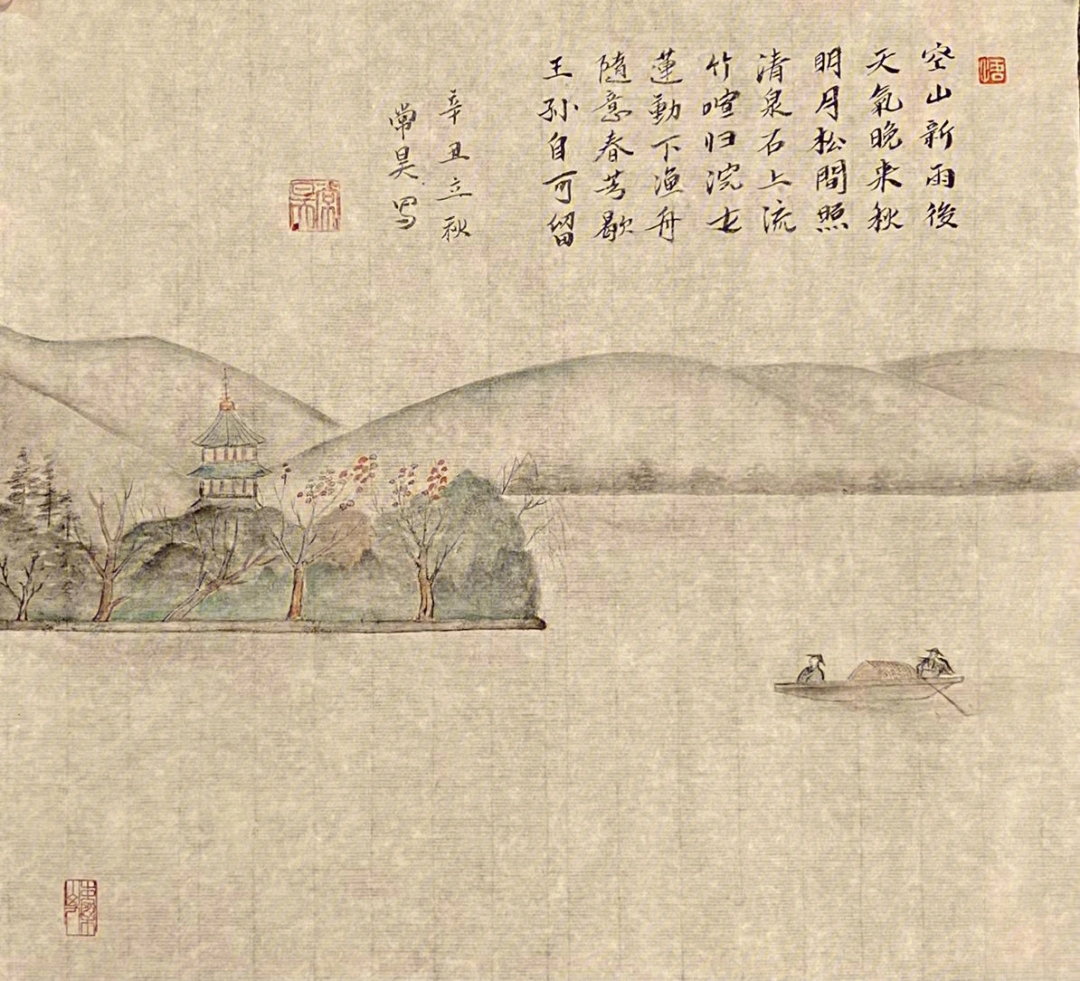 悟
空山新雨後
天氣晚来秋
明月松間照
清泉石上流
竹喧归浣女
蓮動下渔舟
隨意春芳歇
王孙自可留
辛丑立秋
常昊写
常昊